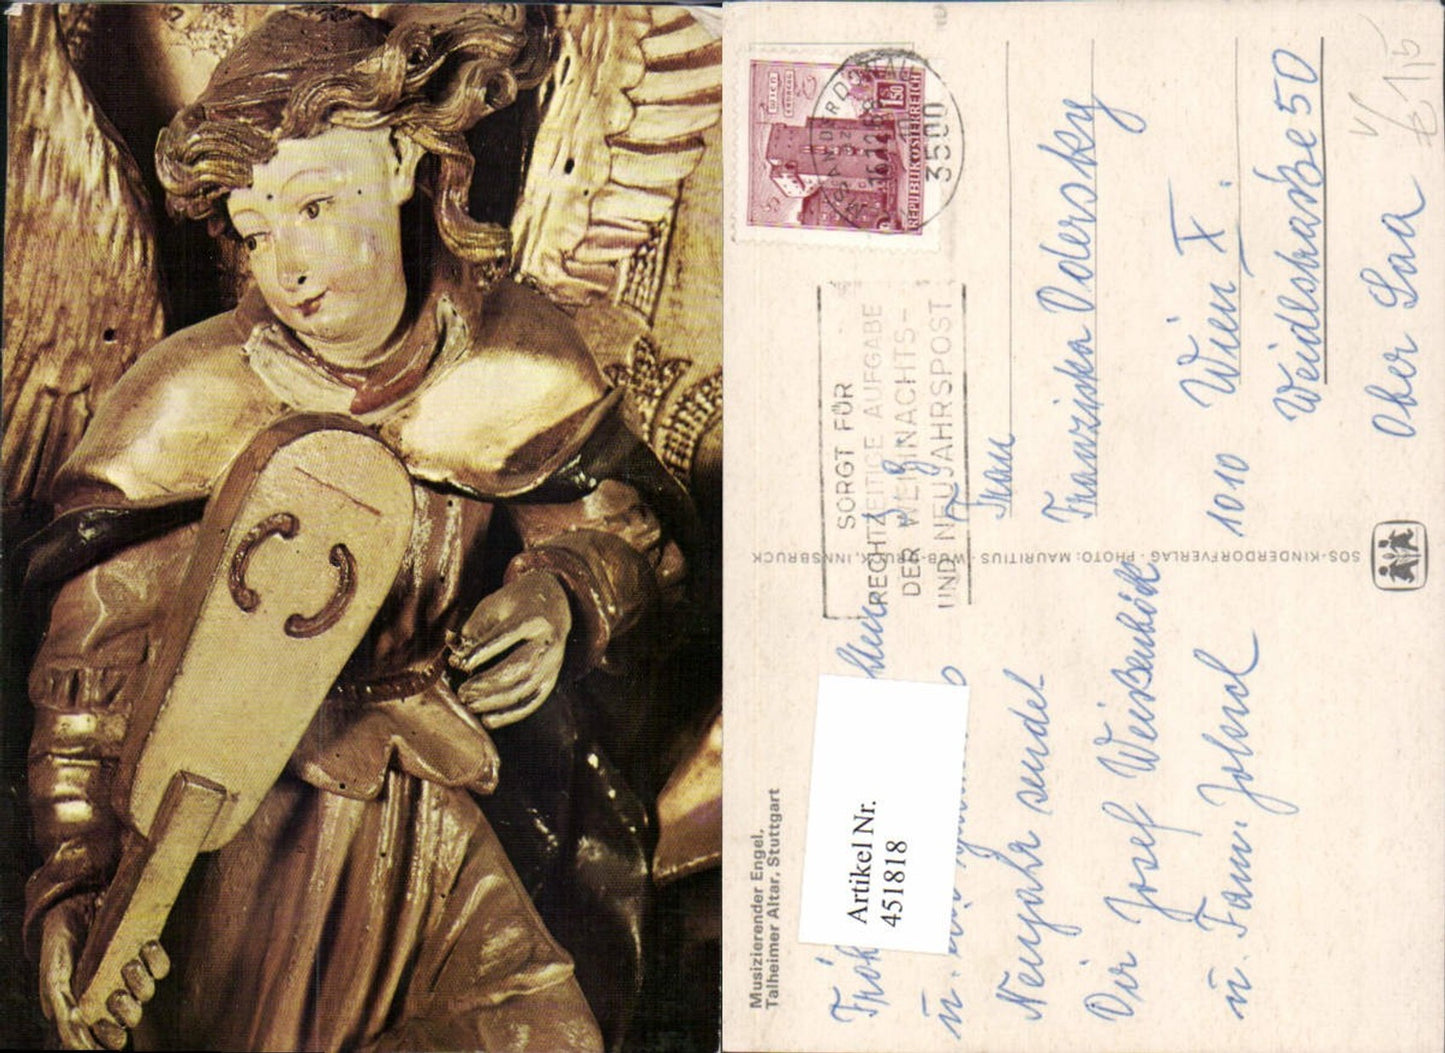 Musizierender Engel,
Talheimer Altar, Stuttgart
SOS-KINDERDORFVERLAG · PHOTO: MAURITIUS · INNSBRUCK
WIEN
REPUBLIK ÖSTERREICH
1.50
3500
SORGT FÜR
RECHTZEITIGE AUFGABE
DER WEIHNACHTS-
UND NEUJAHRSPOST
Artikel Nr.
451818
u.
Neujahr sendet
Dir Josef
u. Fam.
Frau
Franziska Odersky
1010 Wien X.
50
Ober Laa